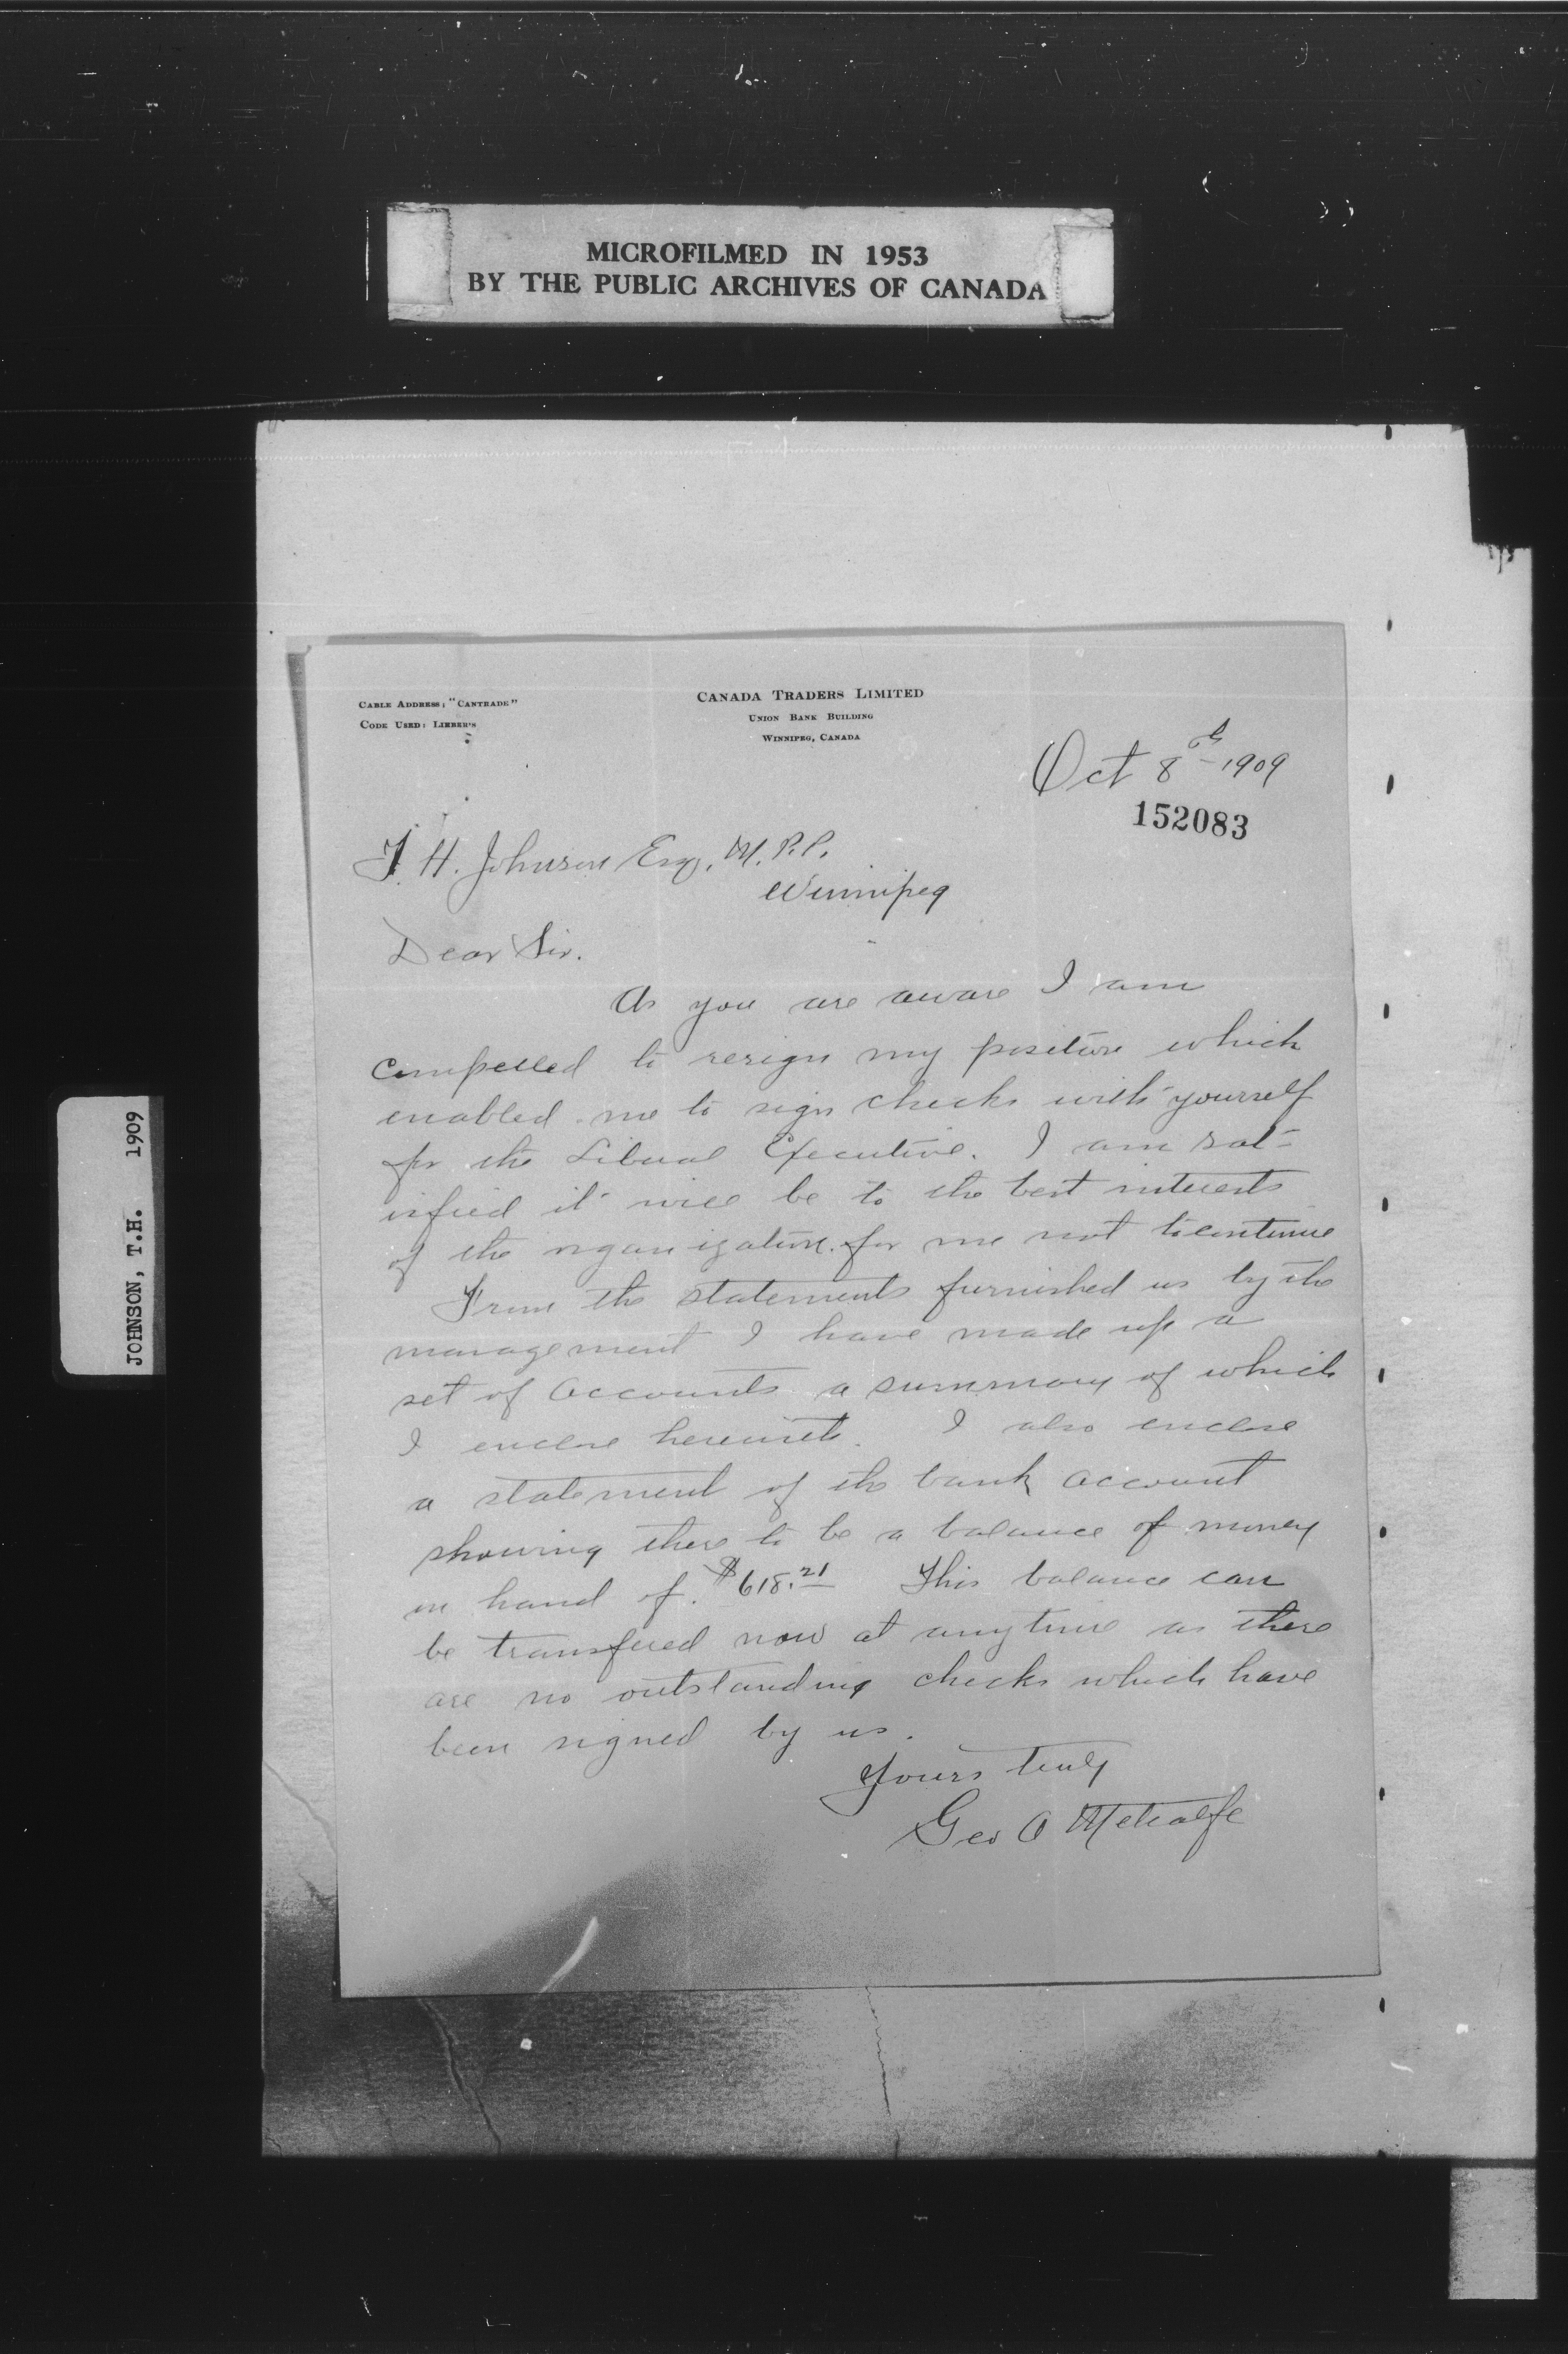 MICROFILMED IN 1953
BY THE PUBLIC ARCHIVES OF CANADA
JOHNSON, T.H. 1909
CABLE ADDRESS; "CANTRADE"
CODE USED: LIEBER'S
CANADA TRADERS LIMITED
UNION BANK BUILDING
WINNIPEG, CANADA
Oct 8th 1909
152083
T. H. Johnson Esq. M.P.P.
Winnipeg
Dear Sir.
As you are aware I am
compelled to resign my position which
enabled me to sign checks with yourself
for the Liberal Executive. I am sat-
isfied it will be to the best interests
of the organization for me not to continue
From the statements furnished us by the
management I have made up a
set of accounts a summary of which
I enclose herewith. I also enclose
a statement of the bank account
showing there to be a balance of money
on hand of $618.21 This balance can
be transfered now at anytime as there
are no outstanding checks which have
been signed by us.
Yours truly
Geo O Metcalfe